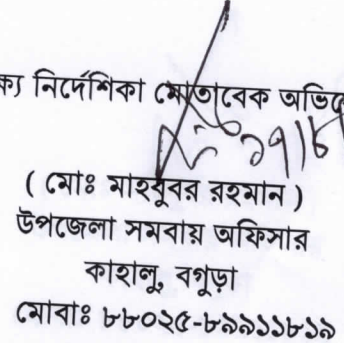 ক্য নির্দেশিকা মোতাবেক অভি
( মোঃ মাহবুবর রহমান )
উপজেলা সমবায় অফিসার
কাহালু, বগুড়া
মোবাঃ ৮৮০২৫-৮৯৯১১৮১৯